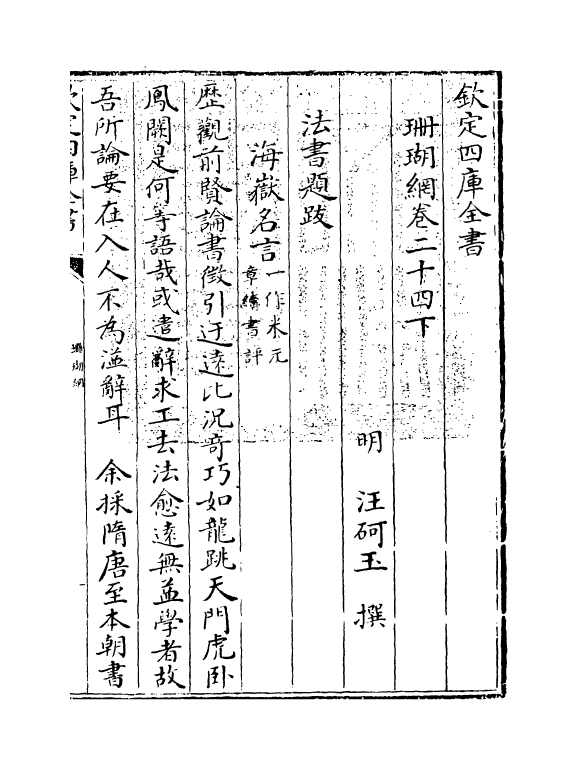 欽定四庫全書
珊瑚網卷二十四下
明 汪砢玉 撰
法書題跋
海嶽名言一作米元章續書評
歴觀前賢論書徵引迂遠比況竒巧如龍跳天門虎卧
鳳闕是何等語哉或遣辭求工去法愈遠無益學者故
吾所論要在入人不為溢辭耳 余採隋唐至本朝書
欽定四庫全書
珊瑚網